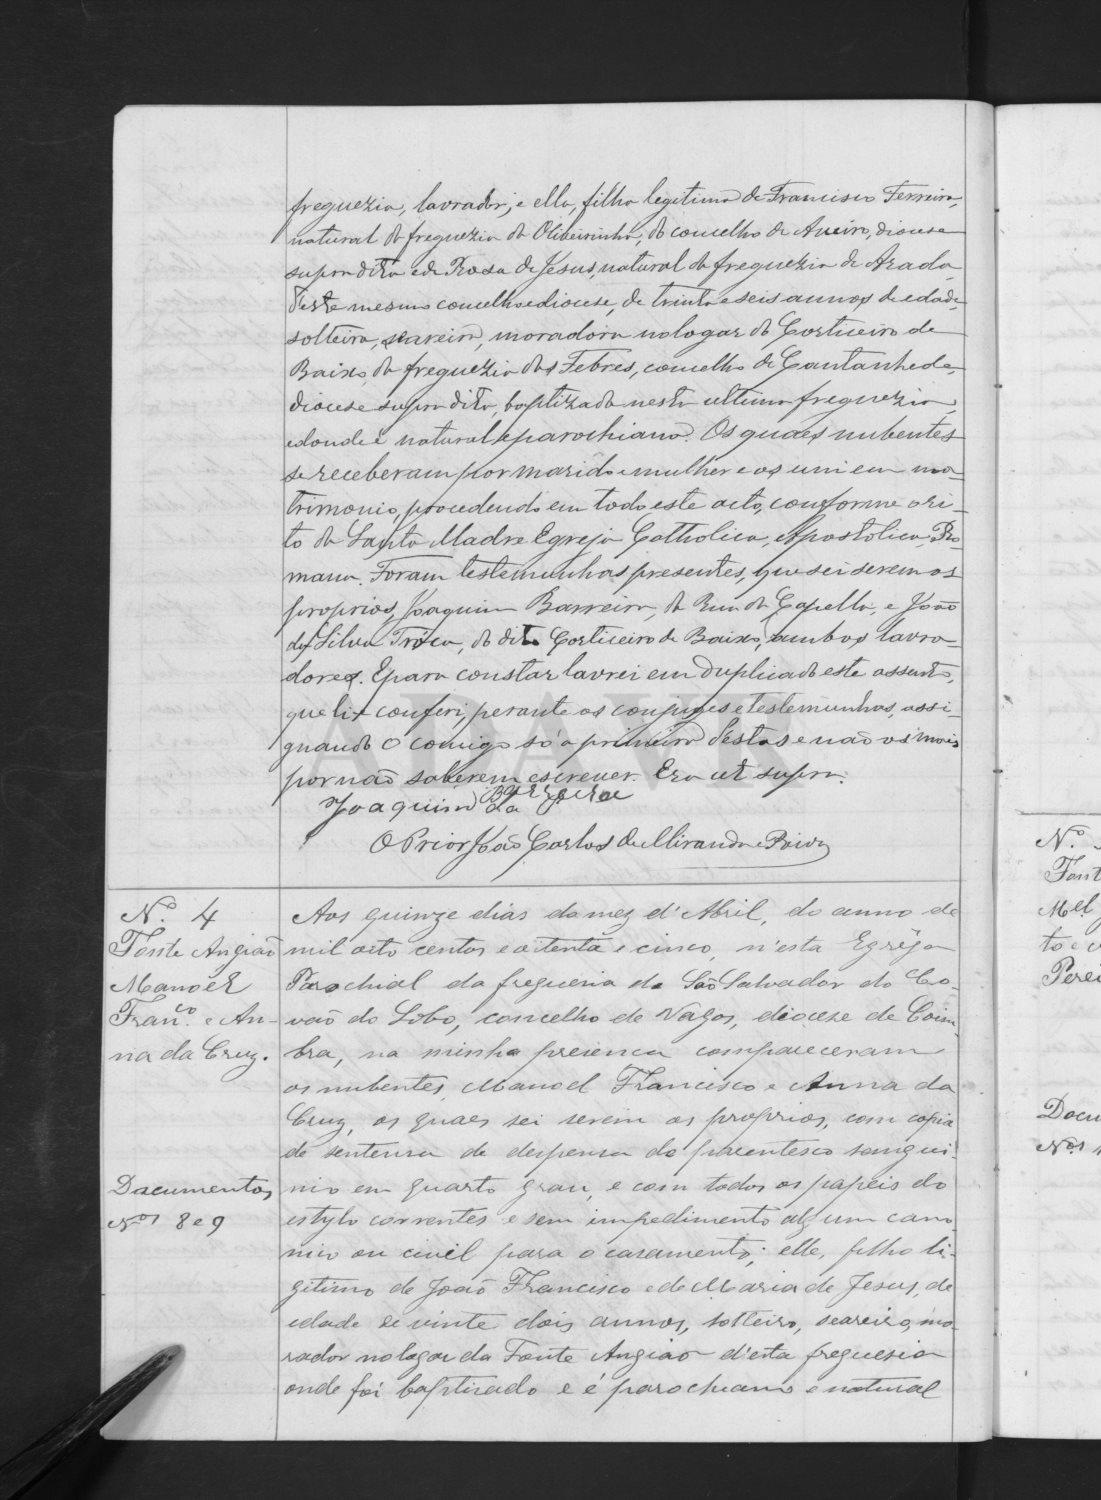 freguezia, lavrador, e ella, filha legitima de Francisco Ferreira,
natural da freguezia da Oliveirinha, do concelho de Aveiro, diocese
supradita e de Rosa de Jesus, natural da freguezia de Arada,
d'este mesmo concelho e diocese, de trinta e seis annos de edade,
solteira, seareira, moradora no logar do Corticeiro de
Baixo, da freguezia das Febres, concelho de Cantanhede,
diocese supra dita, baptizada nesta ultima freguezia
e donde é natural e parochiana. Os quaes nubentes
se receberam por marido e mulher e os uni em ma-
trimonio, procedendo em todo este acto, conforme o ri-
to da Santa Madre Egreja Catholica, Apostolica, Ro-
mana. Foram testemunhas presentes, que sei serem os
proprios, Joaquim Barreira, da Rua da Capella, e João
da Silva Troca, do dito Corticeiro de Baixo, ambos lavra-
dores. E para constar lavrei em duplicado este assento,
que li e conferi, perante os conjuges e testemunhas, assi-
gnando o comigo só a primeira d'estas e não os mais
por não saberem escrever. Era ut supra.
Joaquim da
O Prior João Carlos de Miranda e
Nº 4
Fonte Angião
Manoel
Fran.co e An-
na da Cruz.
Documentos
Nos 8 e 9
Aos quinze dias do mez d'Abril, do anno de
mil oito centos e oitenta e cinco, n'esta Egreja
Parochial da freguesia de São Salvador do Co-
vão do Lobo, concelho de Vagos, diocese de Coim
bra, na minha presença compareceram
os nubentes, Manoel Francisco e Anna da
Cruz, os quaes sei serem os proprios, com copia
de sentença de despensa do parentesco sangui-
nio em quarto grau, e com todos os papeis do
estylo correntes e sem impedimento algum cano
nico ou civil para o casamento; elle, filho li-
gitimo de João Francisco e de Maria de Jesus, de
edade de vinte dois annos, solteiro, seareiro, mo-
rador no logar da Fonte Angião d'esta freguesia
onde foi baptisado e é parochiano e natural
Nº
Font
Mel
to e
Perei
Docu
Nos